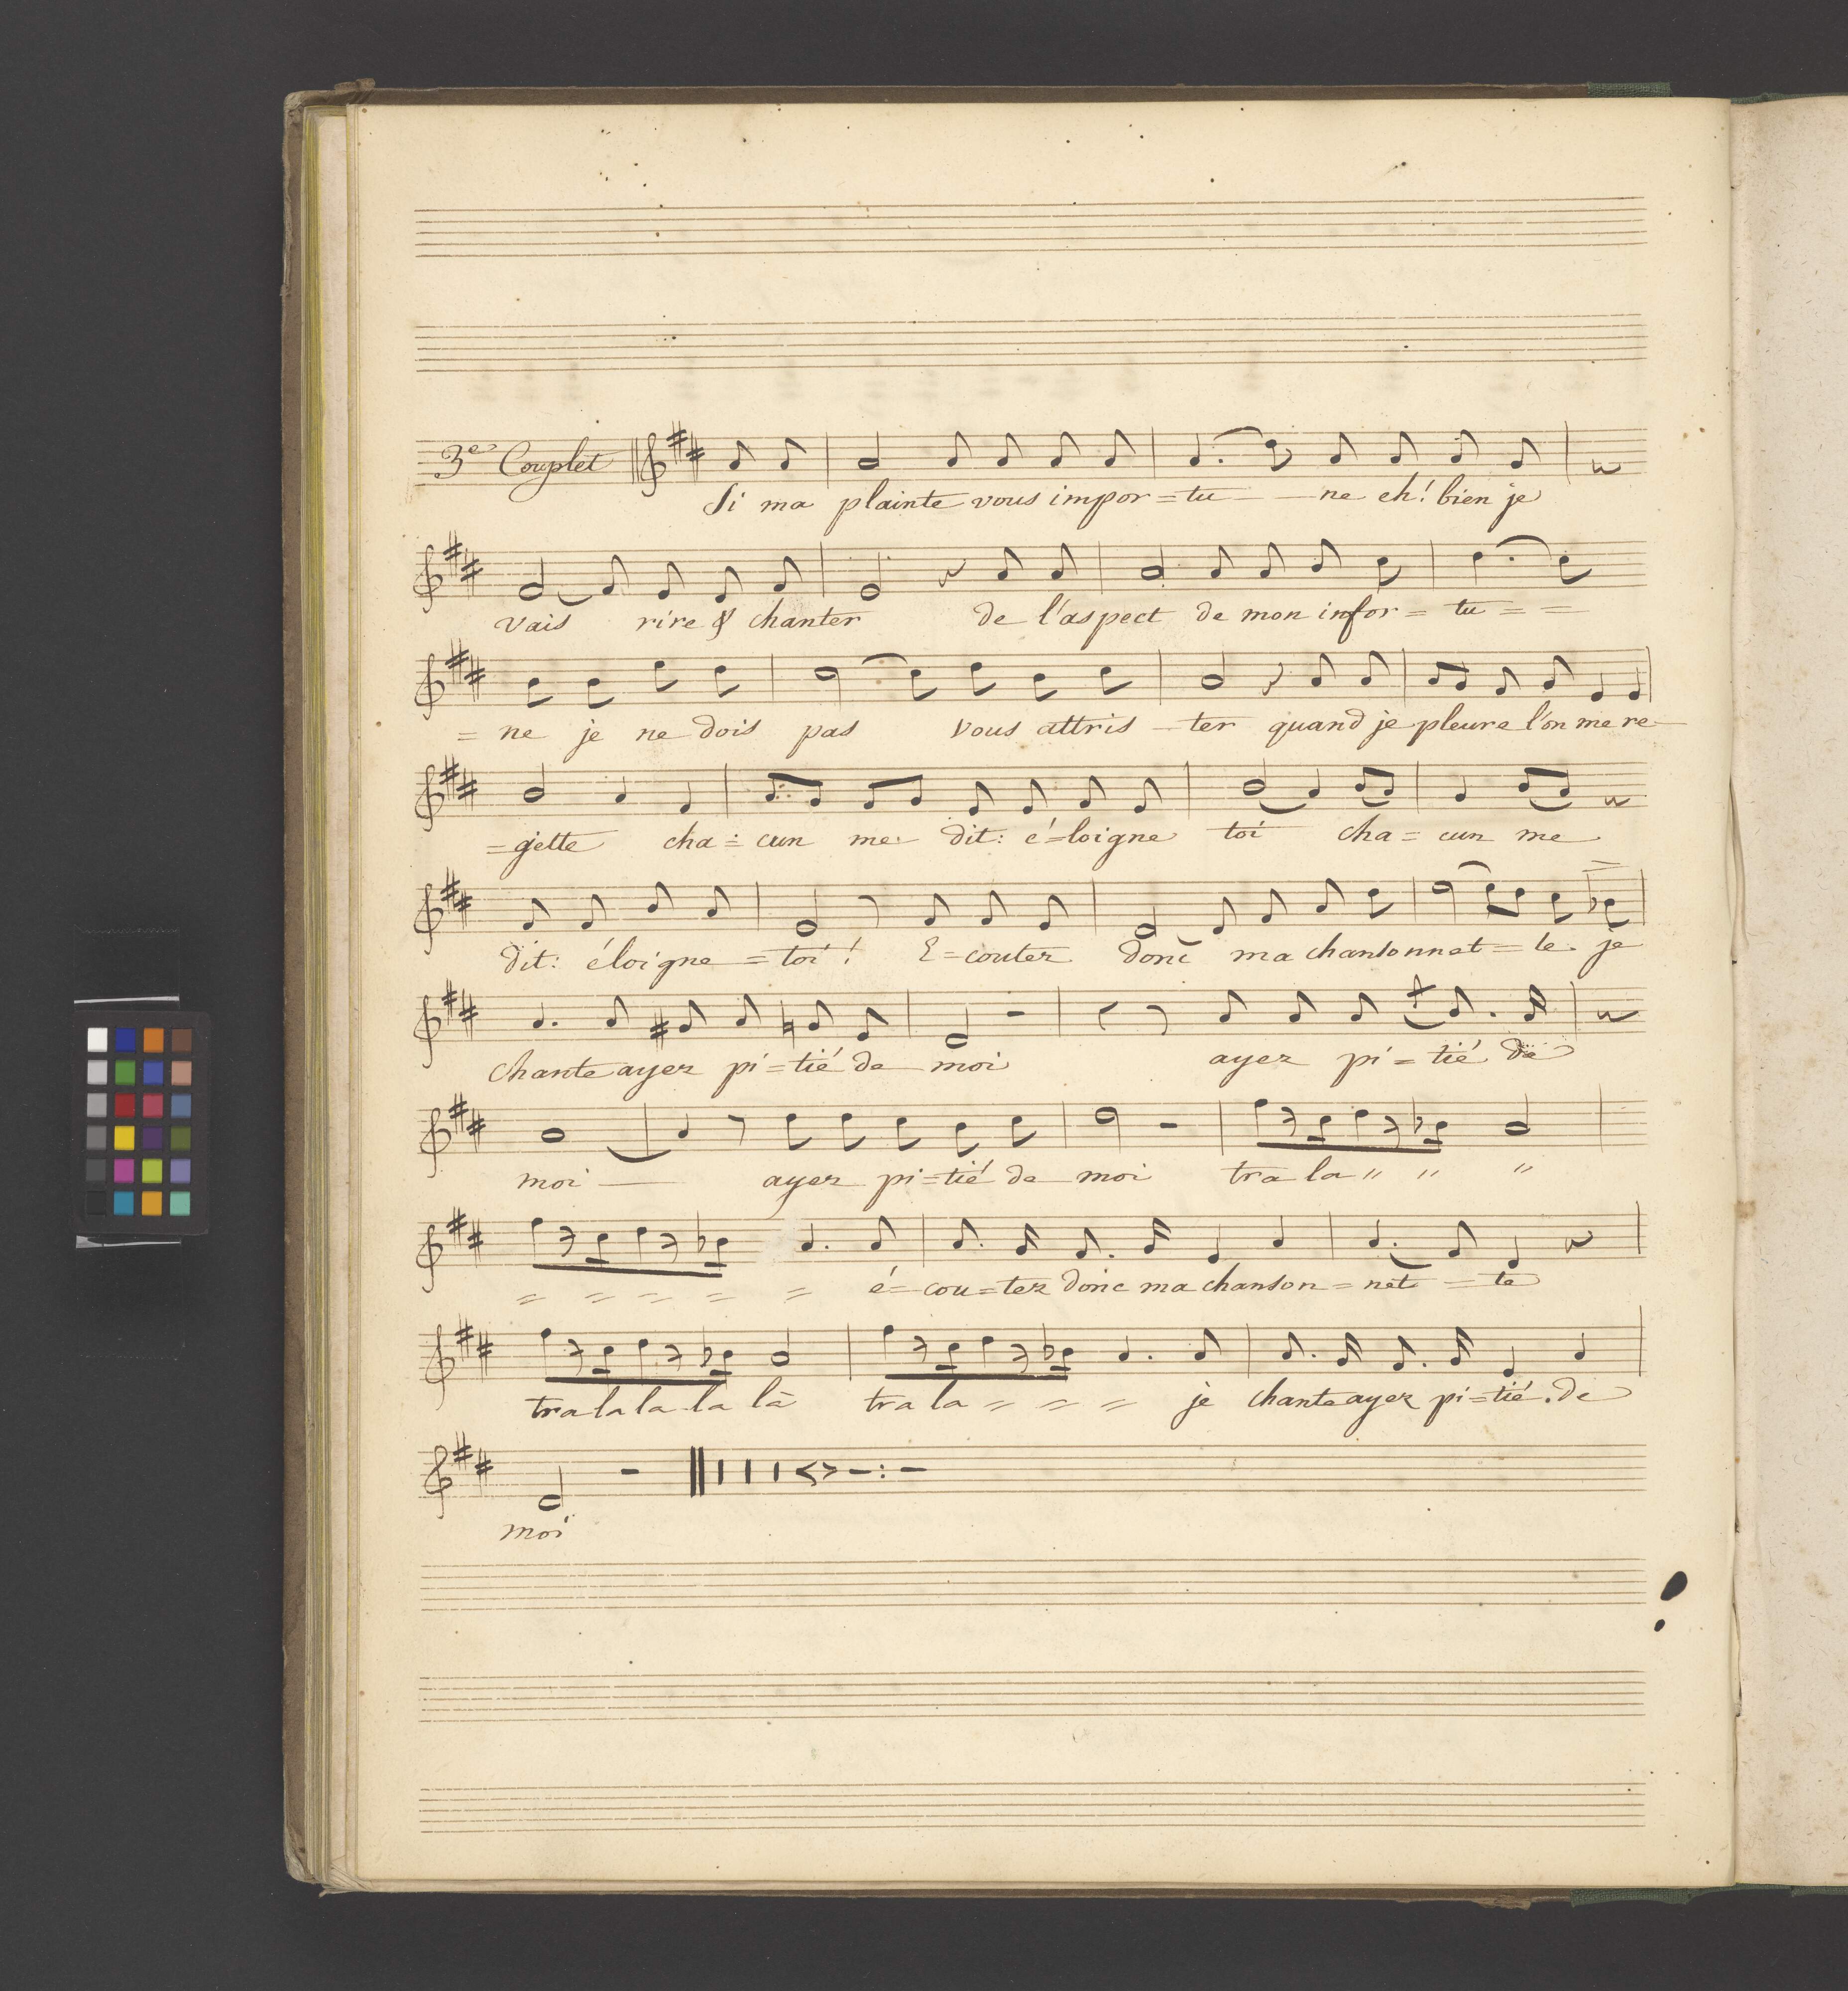 3e Couplet
Si ma plainte vous impor = tu — ne eh! bien je
vais rire & chanter de l'aspect de mon infor = tu = =
= ne je ne dois pas vous attris — ter quand je pleure l'on me re—
= gette cha = cun me dit: é = loigne toi cha = cun me
dit: éloigne = toi! E = coutez donc ma chansonnet = te je
chante ayez pi = tié de moi ayez pi = tié de
moi — ayez pi = tié de moi tra la " " "
= = = = = é = cou = tez donc ma chanson = net = te
tra la la la là tra la = = = je chante ayez pi = tié de
moi